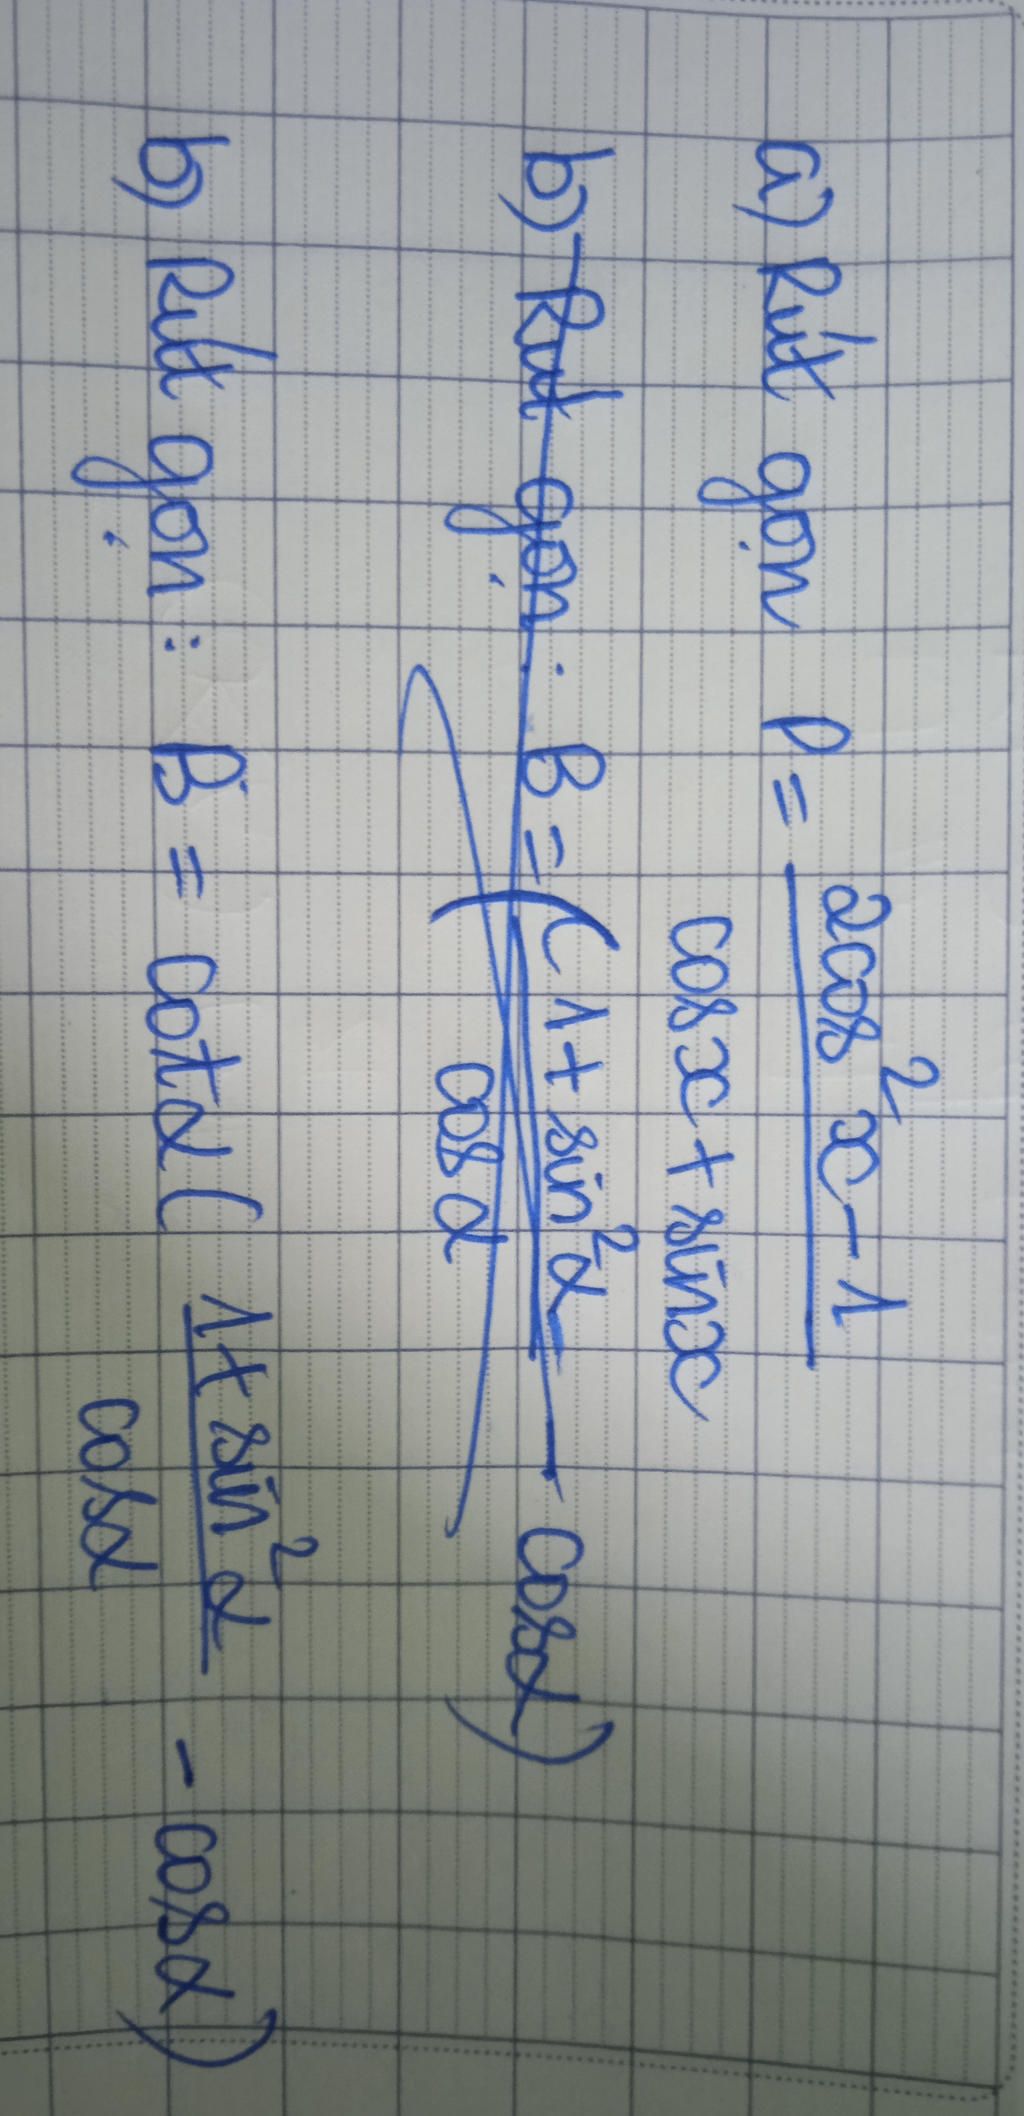 a) Rút gọn P = \frac{2cos^2 x - 1}{cos x + sin x}
b) Rút gọn: B = ( \frac{1 + sin^2 α}{cos α} - cos α )
b) Rút gọn: B = cot α ( \frac{1 + sin^2 α}{cos α} - cos α )